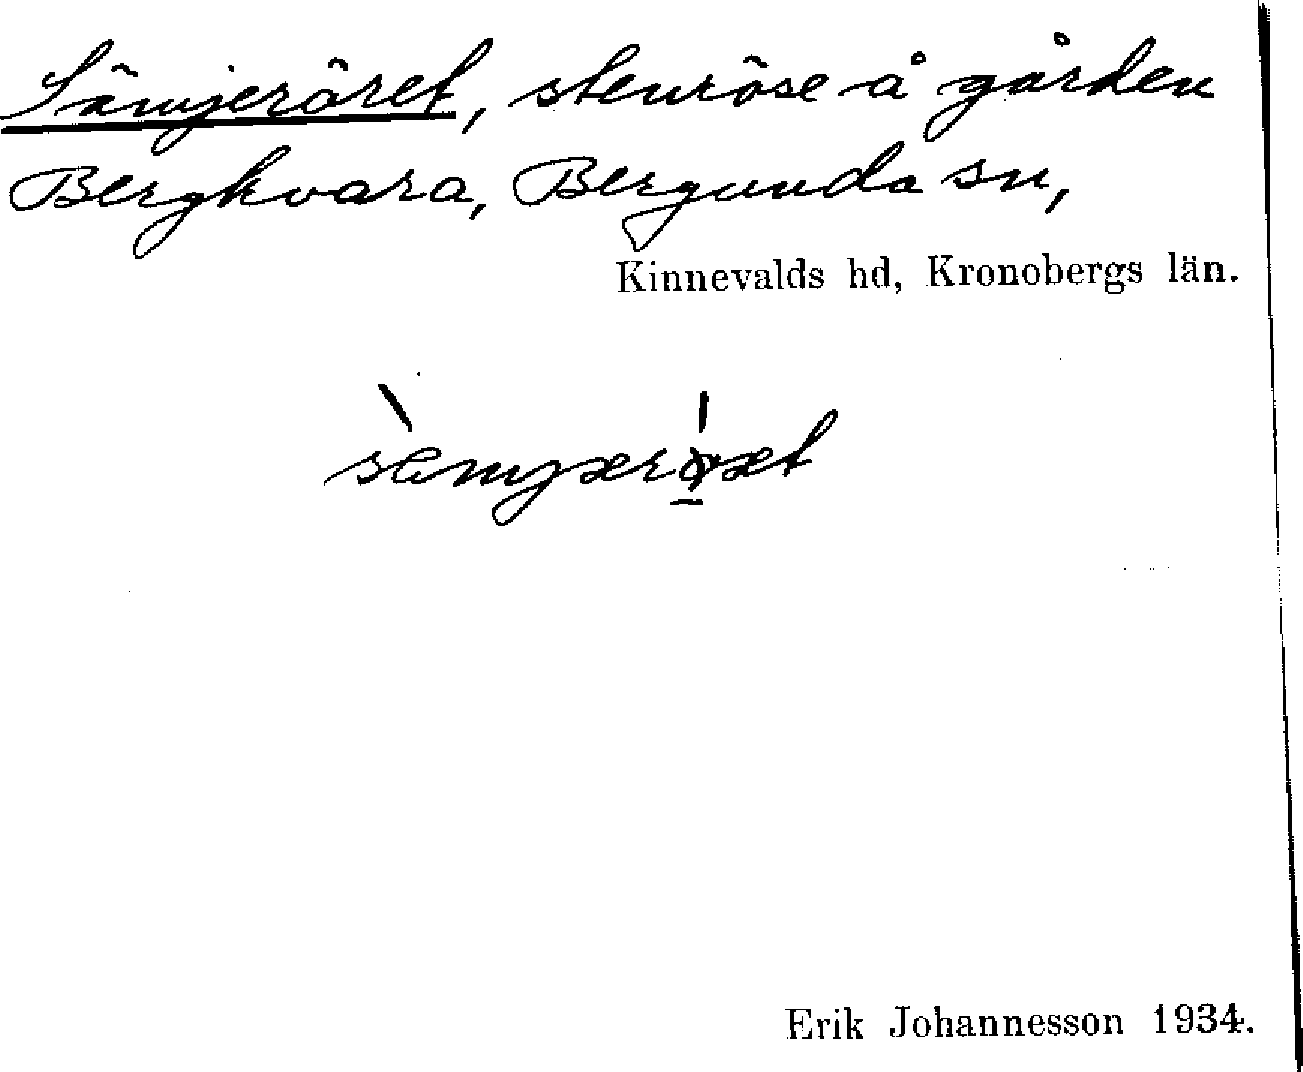 Sämjeröret, stenröse å gården
Bergkvara, Bergunda sn,
Kinnevalds hd, Kronobergs län.
Erik Johannesson 1934.